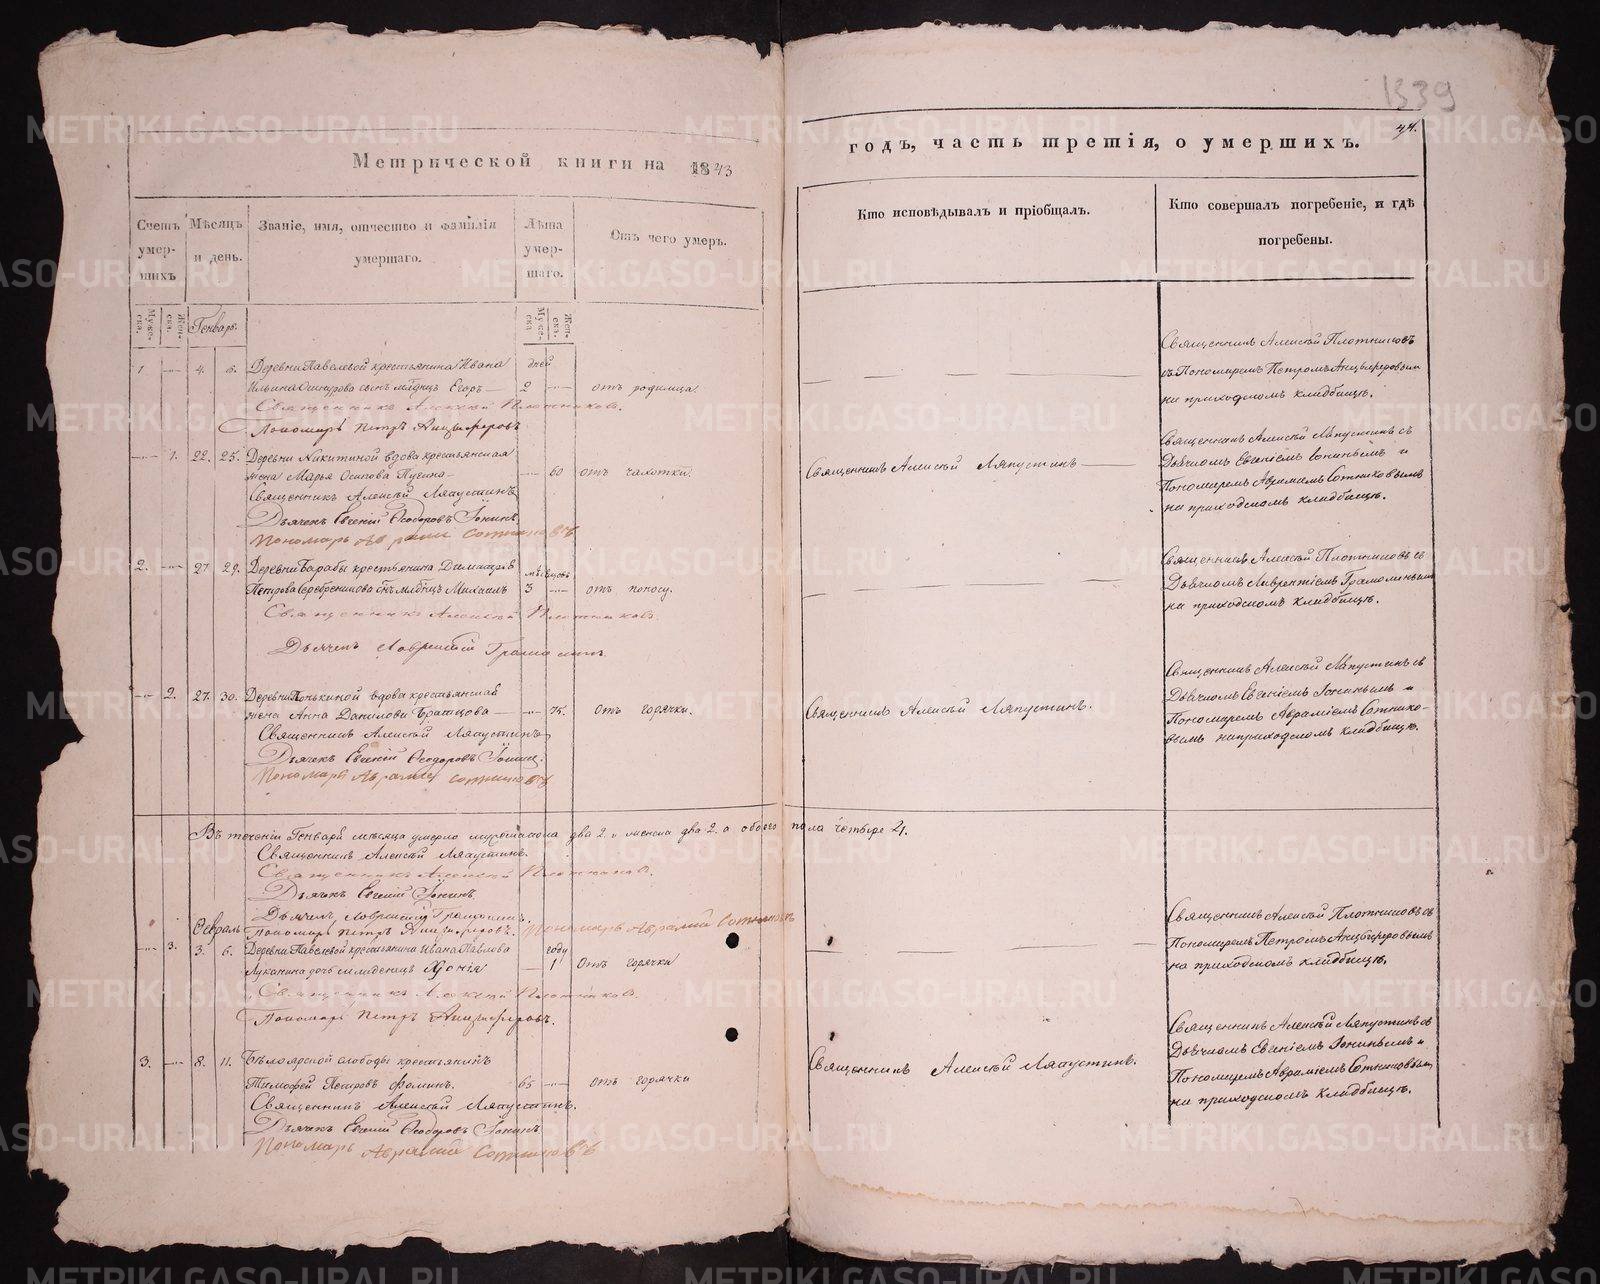 1339
44.
Метрической книги на 1843
годъ, часть третія, о умершихъ.
Счетъ умер-шихъ
Мѣсяцъ и день.
Званіе, имя, отчество и фамилія умершаго.
Лѣта умер-шаго.
Отъ чего умеръ.
Кто исповѣдывалъ и пріобщалъ.
Кто совершалъ погребеніе, и гдѣ погребены.
Муже-ска.
Жен-ска.
Генварь.
Муже-ска
Жен-ска.
1 4. 6. Деревни Павелевой крестьянина Ивана дней
Ильина сынъ млднцъ Егоръ 2 отъ родимца.
Священникъ Алексѣй Плотниковъ.
Пономарь Петръ Анцыферовъ
Священникъ Алексѣй Плотниковъ
съ Пономаремъ Петромъ Анцыферовымъ
на приходскомъ кладбищѣ.
1. 22. 25. Деревни Никитиной вдова крестьянская
жена Марья Осипова 60 отъ чахотки.
Священникъ Алексѣй Ляпустинъ
Дьячекъ Евгеній Ѳеодоровъ Іонинъ.
Пономарь Аврамій Сотниковъ
Священникъ Алексѣй Ляпустинъ
Священникъ Алексѣй Ляпустинъ съ
Дьячкомъ Евгеніемъ Іонинымъ и
Пономаремъ Авраміемъ Сотниковымъ
на приходскомъ кладбищѣ.
2. 27 29. Деревни Барабы крестьянина Димитрія мѣсяцовъ
Петрова Серебреникова сынъ млднцъ Михаилъ 3 отъ поносу.
Священникъ Алексѣй Плотниковъ.
Дьячекъ Лаврентій
Священникъ Алексѣй Плотниковъ съ
Дьячкомъ Лаврентіемъ
на приходскомъ кладбищѣ.
2. 27. 30. Деревни вдова крестьянская
жена Анна Данилова 75. отъ горячки.
Священникъ Алексѣй Ляпустинъ
Дьячекъ Евгеній Ѳеодоровъ Іонинъ.
Пономарь Аврамій Сотниковъ
Священникъ Алексѣй Ляпустинъ.
Священникъ Алексѣй Ляпустинъ съ
Дьячкомъ Евгеніемъ Іонинымъ и
Пономаремъ Авраміемъ Сотнико-
вымъ на приходскомъ кладбищѣ.
Въ теченіи Генваря мѣсяца умерло мужеска пола два 2. и женска два 2. а обоего пола четыре 4.
Священникъ Алексѣй Ляпустинъ.
Священникъ Алексѣй Плотниковъ.
Дьячекъ Евгеній Іонинъ
Дьячекъ Лаврентій
Февраль Пономарь Петръ Анцыферовъ. Пономарь Аврамій Сотниковъ
3. 3. 6. Деревни Павелевой крестьянина Ивана Павлова году
Луканина дочь младенецъ 1 Отъ горячки
Священникъ Алексѣй Плотниковъ.
Пономарь Петръ Анцыферовъ.
Священникъ Алексѣй Плотниковъ съ
Пономаремъ Петромъ Анцыферовымъ
на приходскомъ кладбищѣ.
3. 8. 11. Бѣлоярской слободы крестьянинъ
Тимофей Петровъ Фоминъ. 65 Отъ горячки
Священникъ Алексѣй Ляпустинъ.
Дьячекъ Евгеній Ѳеодоровъ Іонинъ
Пономарь Аврамій Сотниковъ
Священникъ Алексѣй Ляпустинъ.
Священникъ Алексѣй Ляпустинъ съ
Дьячкомъ Евгеніемъ Іонинымъ и
Пономаремъ Авраміемъ Сотниковымъ
на приходскомъ кладбищѣ.
METRIKI.GASO-URAL.RU